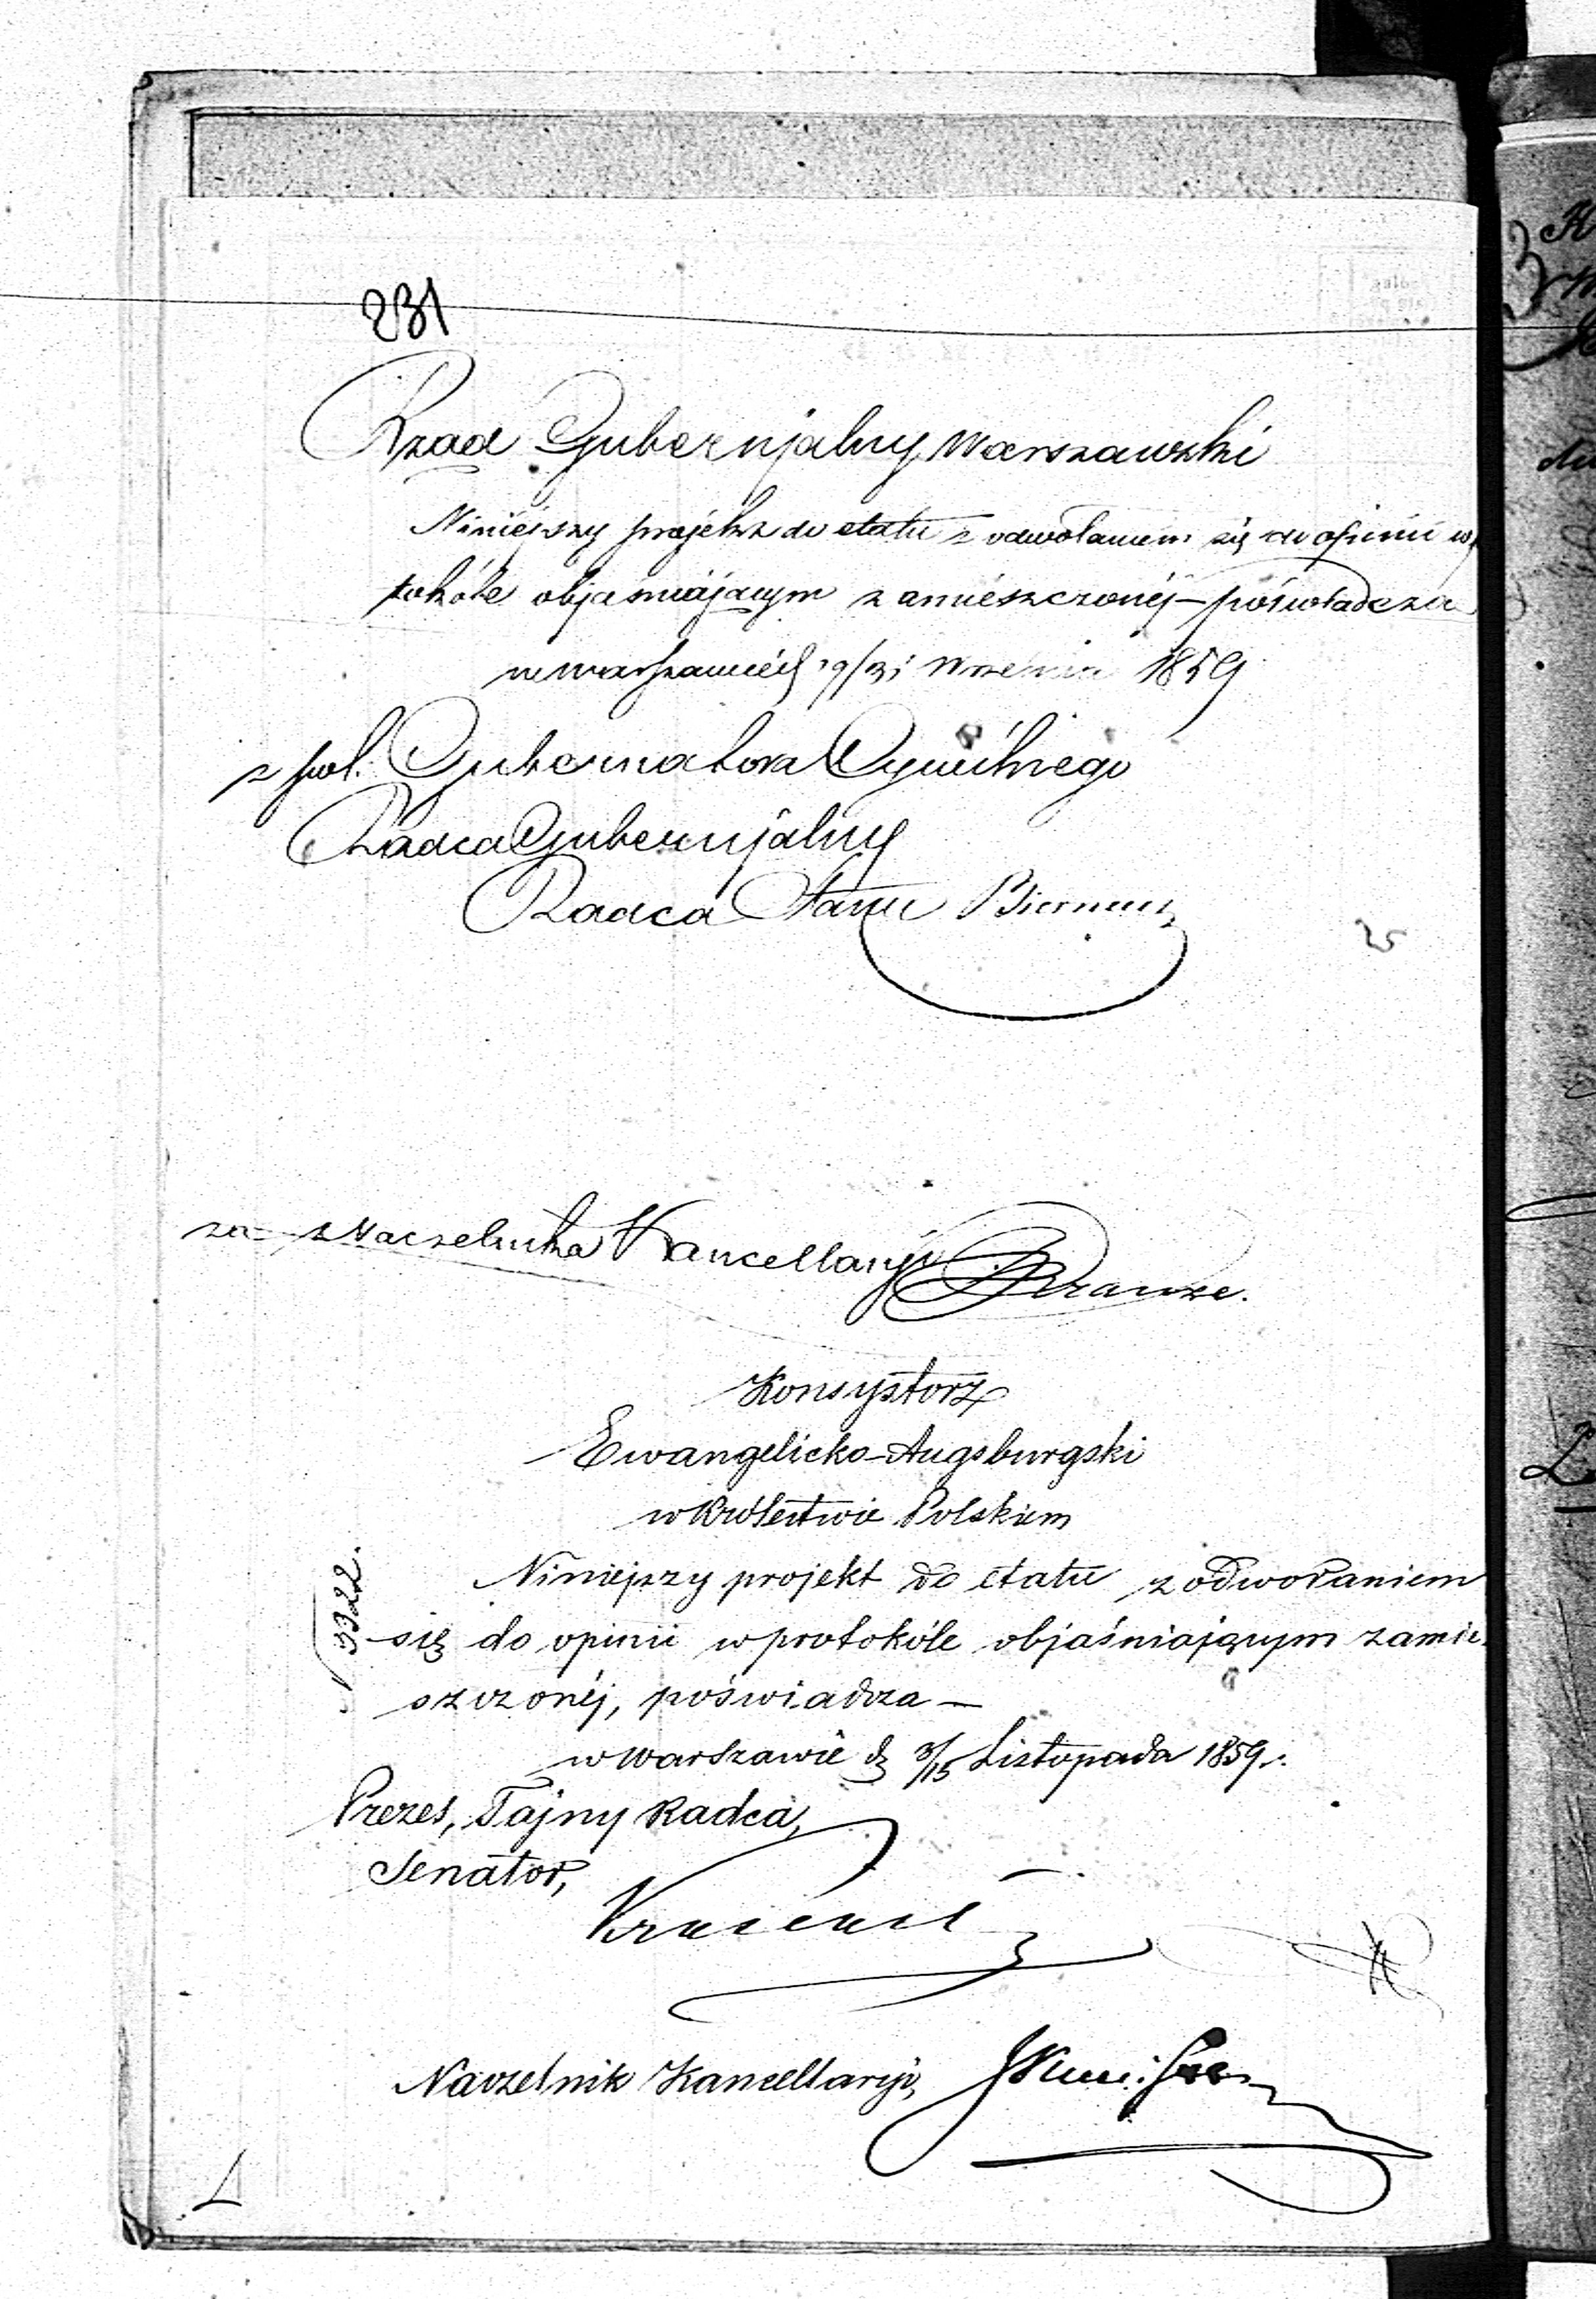 231
Rząd Gubernjalny Warszawski
Niniejszy projekt do etatu z odwołaniem się do opinii w
tokóle objaśniającym zamieszczonéj – poświadcza
w Warszawie d 19/31 Września 1859
z pol. Gubernatora Cywilnego
Radca Gubernjalny
Radca Stanu
za Naczelnika Kancellaryi
Konsystorz
Ewangelicko-Augsburgski
w Królestwie Polskiem
3322.
Niniejszy projekt do etatu z odwołaniem
się do opinii w protokóle objaśniającym zamie-
szczonéj, poświadcza –
w Warszawie d 3/15 Listopada 1859 r.
Prezes, Tajny Radca,
Senator,
Naczelnik Kancellaryi,